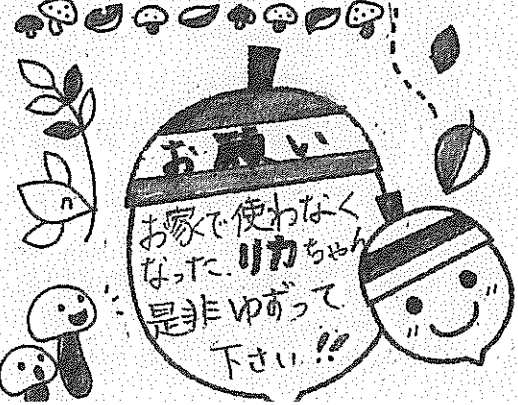 お願い
お家で使わなく
なった.リカちゃん
是非ゆずって
下さい!!